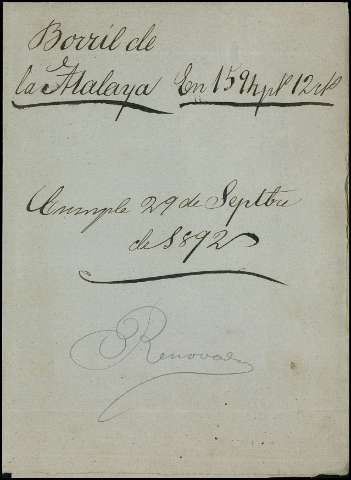 Borril de
la Atalaya En 159
Cumple 29 de Septbre
de 1892
Renovada